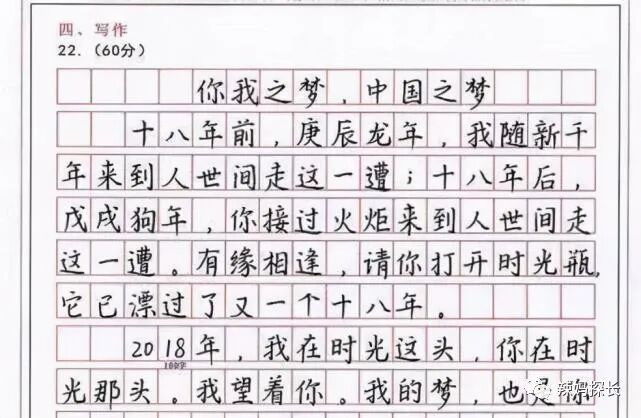 四、写作
22.（60分）
你我之梦，中国之梦
十八年前，庚辰龙年，我随新千
年来到人世间走这一遭；十八年后，
戊戌狗年，你接过火炬来到人世间走
这一遭。有缘相逢，请你打开时光瓶，
它已漂过了又一个十八年。
2018年，我在时光这头，你在时
100字
光那头。我望着你。我的梦，也是你
辣妈探长